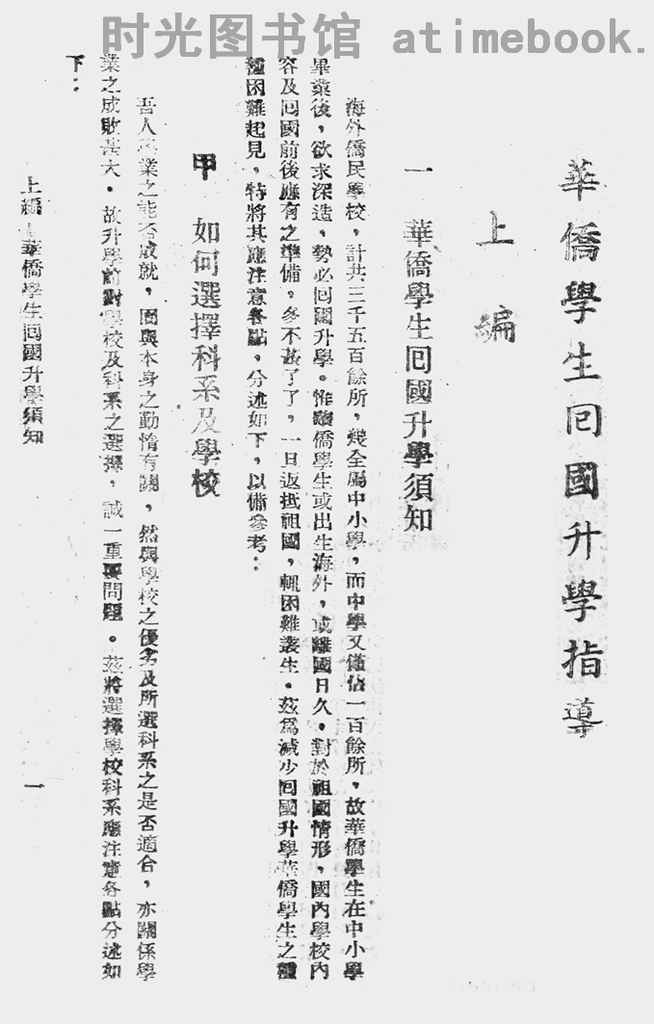 时光图书馆 atimebook.
華僑學生回國升學指導
上編
一 華僑學生回國升學須知
海外僑民學校，計共三千五百餘所，幾全屬中小學，而中學又僅佔一百餘所，故華僑學生在中小學
畢業後，欲求深造，勢必回國升學。惟歸僑學生或出生海外，或離國日久，對於祖國情形，國內學校內
容及回國前後應有之準備，多不甚了了，一旦返抵祖國，輒困難叢生。茲爲減少回國升學華僑學生之種
種困難起見，特將其應注意各點，分述如下，以備參考：
甲 如何選擇科系及學校
吾人學業之能否成就，固與本身之勤惰有關，然與學校之優劣及所選科系之是否適合，亦關係學
業之成敗甚大。故升學前對學校及科系之選擇，誠一重要問題。茲將選擇學校科系應注意各點分述如
下：
上編 華僑學生回國升學須知
一